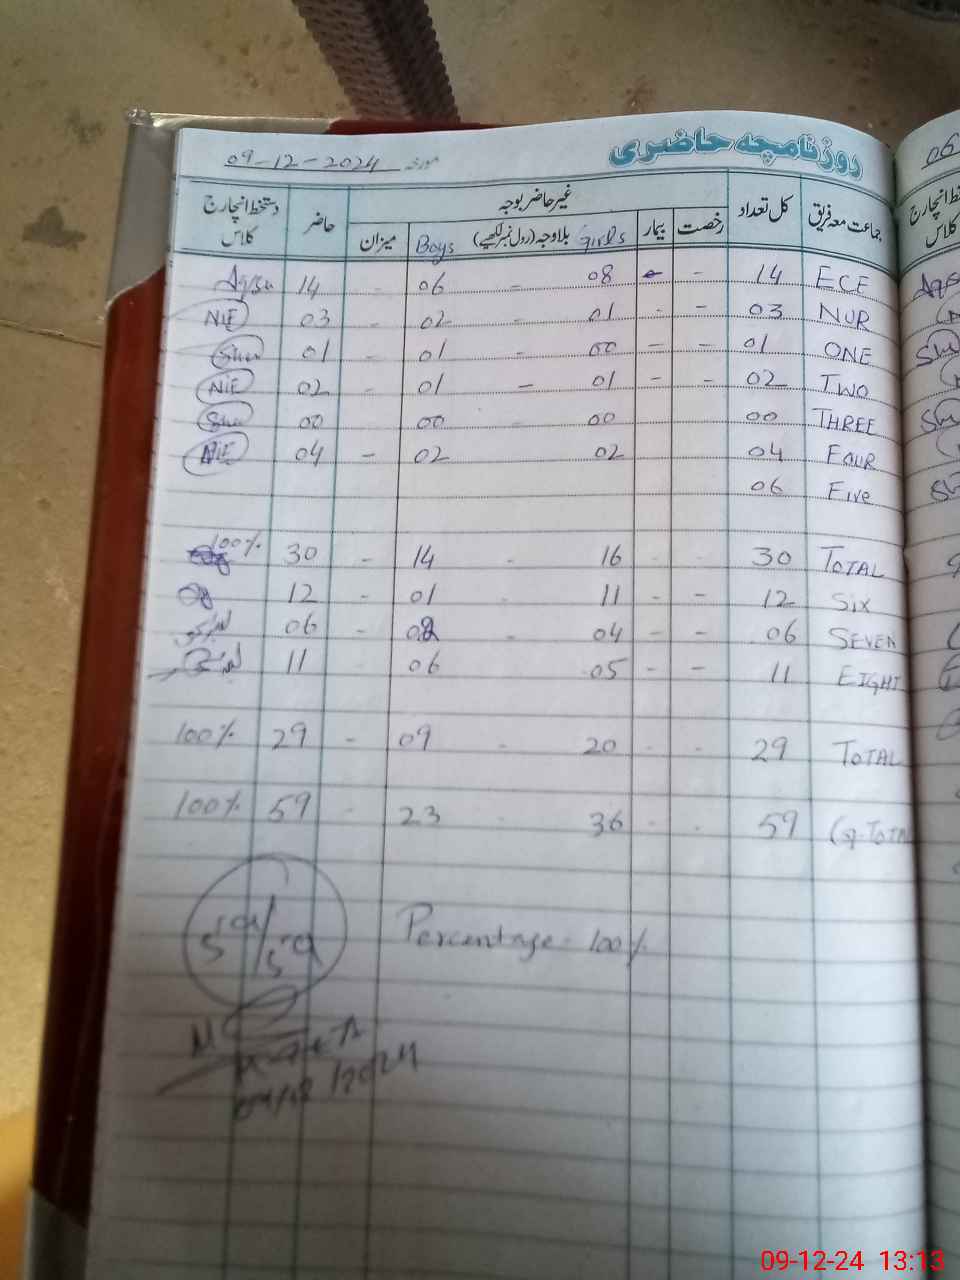 روزنامچہ حاضری مورخہ 09-12-2024
جماعت معہ فریق کل تعداد غیر حاضر بوجہ حاضر دستخط انچارج کلاس
رخصت بیمار Girls بلاوجہ (رول نمبر لکھیے) Boys میزان
ECE 14 - - 08 - 06 - 14 Aqsa
NUR 03 - - 01 - 02 - 03 NIE
ONE 01 - - 00 - 01 - 01 Sha
TWO 02 - - 01 - 01 - 02 NIE
THREE 00 00 00 00 Sha
FOUR 04 02 02 - 04 NIE
Five 06
TOTAL 30 - - 16 - 14 - 30 100%
Six 12 - - 11 - 01 - 12
SEVEN 06 - - 04 - 02 - 06
EIGHT 11 - - 05 06 11
TOTAL 29 - - 20 - 09 - 29 100%
G.TOTAL 59 - - 36 - 23 - 59 100%
Percentage = 100%
59/59
09/12/2024
06
09-12-24 13:13